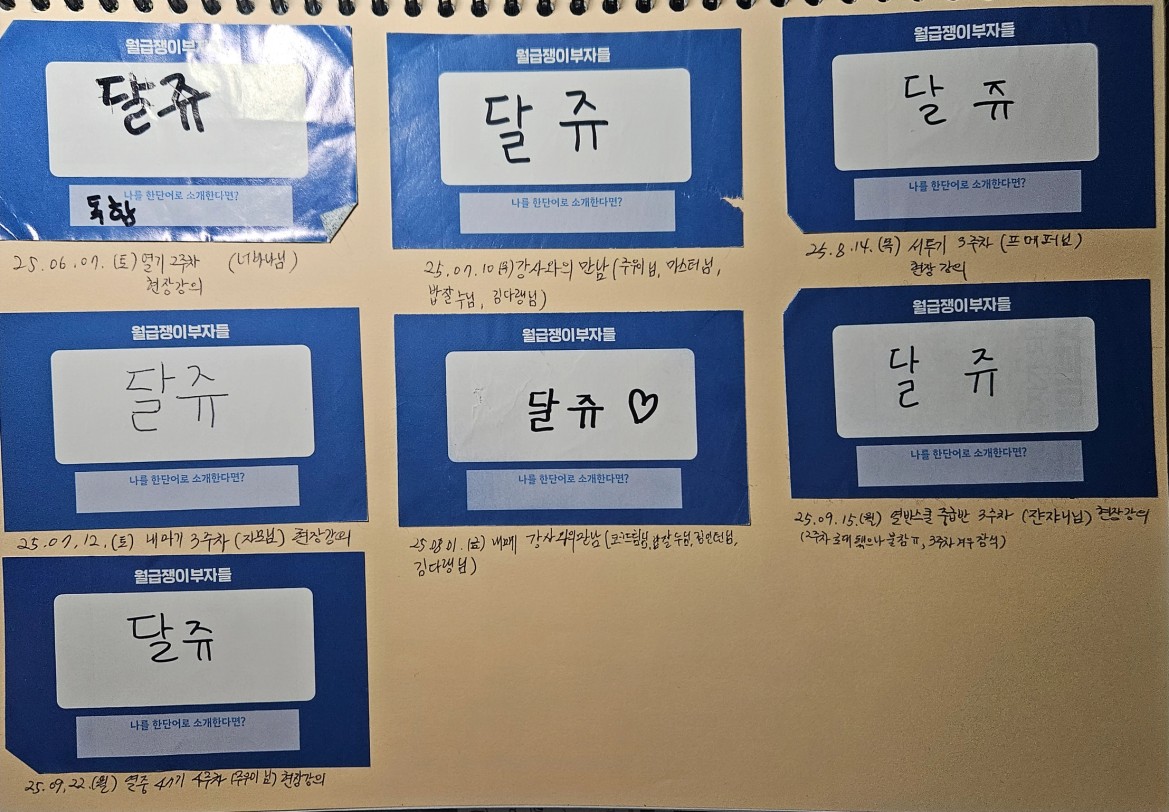 월급쟁이부자들
달쥬
나를 한단어로 소개한다면?
독함
25.06.07.(토) 열기 2주차 (너바나님)
현장강의
월급쟁이부자들
달 쥬
나를 한단어로 소개한다면?
25.07.10(목)강사와의 만남(주우이님, 마스터님,
밥잘누님, 김다랭님)
월급쟁이부자들
달 쥬
나를 한단어로 소개한다면?
25.8.14.(목) 서투기 3주차 (프메퍼님)
현장 강의
월급쟁이부자들
달쥬
나를 한단어로 소개한다면?
25.07.12.(토) 내마기 3주차 (자모님) 현장강의
월급쟁이부자들
달쥬 ♡
나를 한단어로 소개한다면?
25.08.01.(금) 내매 강사와의만남(코크드림님,밥잘누님,
김다랭님)
월급쟁이부자들
달 쥬
나를 한단어로 소개한다면?
25.09.15.(월) 열반스쿨 중급반 3주차 (쟌쟈니님) 현장강의
(2주차 초대 됐으나 불참 ㅠ, 3주차 겨우 참석)
월급쟁이부자들
달쥬
나를 한단어로 소개한다면?
25.09.22.(월) 열중 47기 4주차 (주우이님) 현장강의